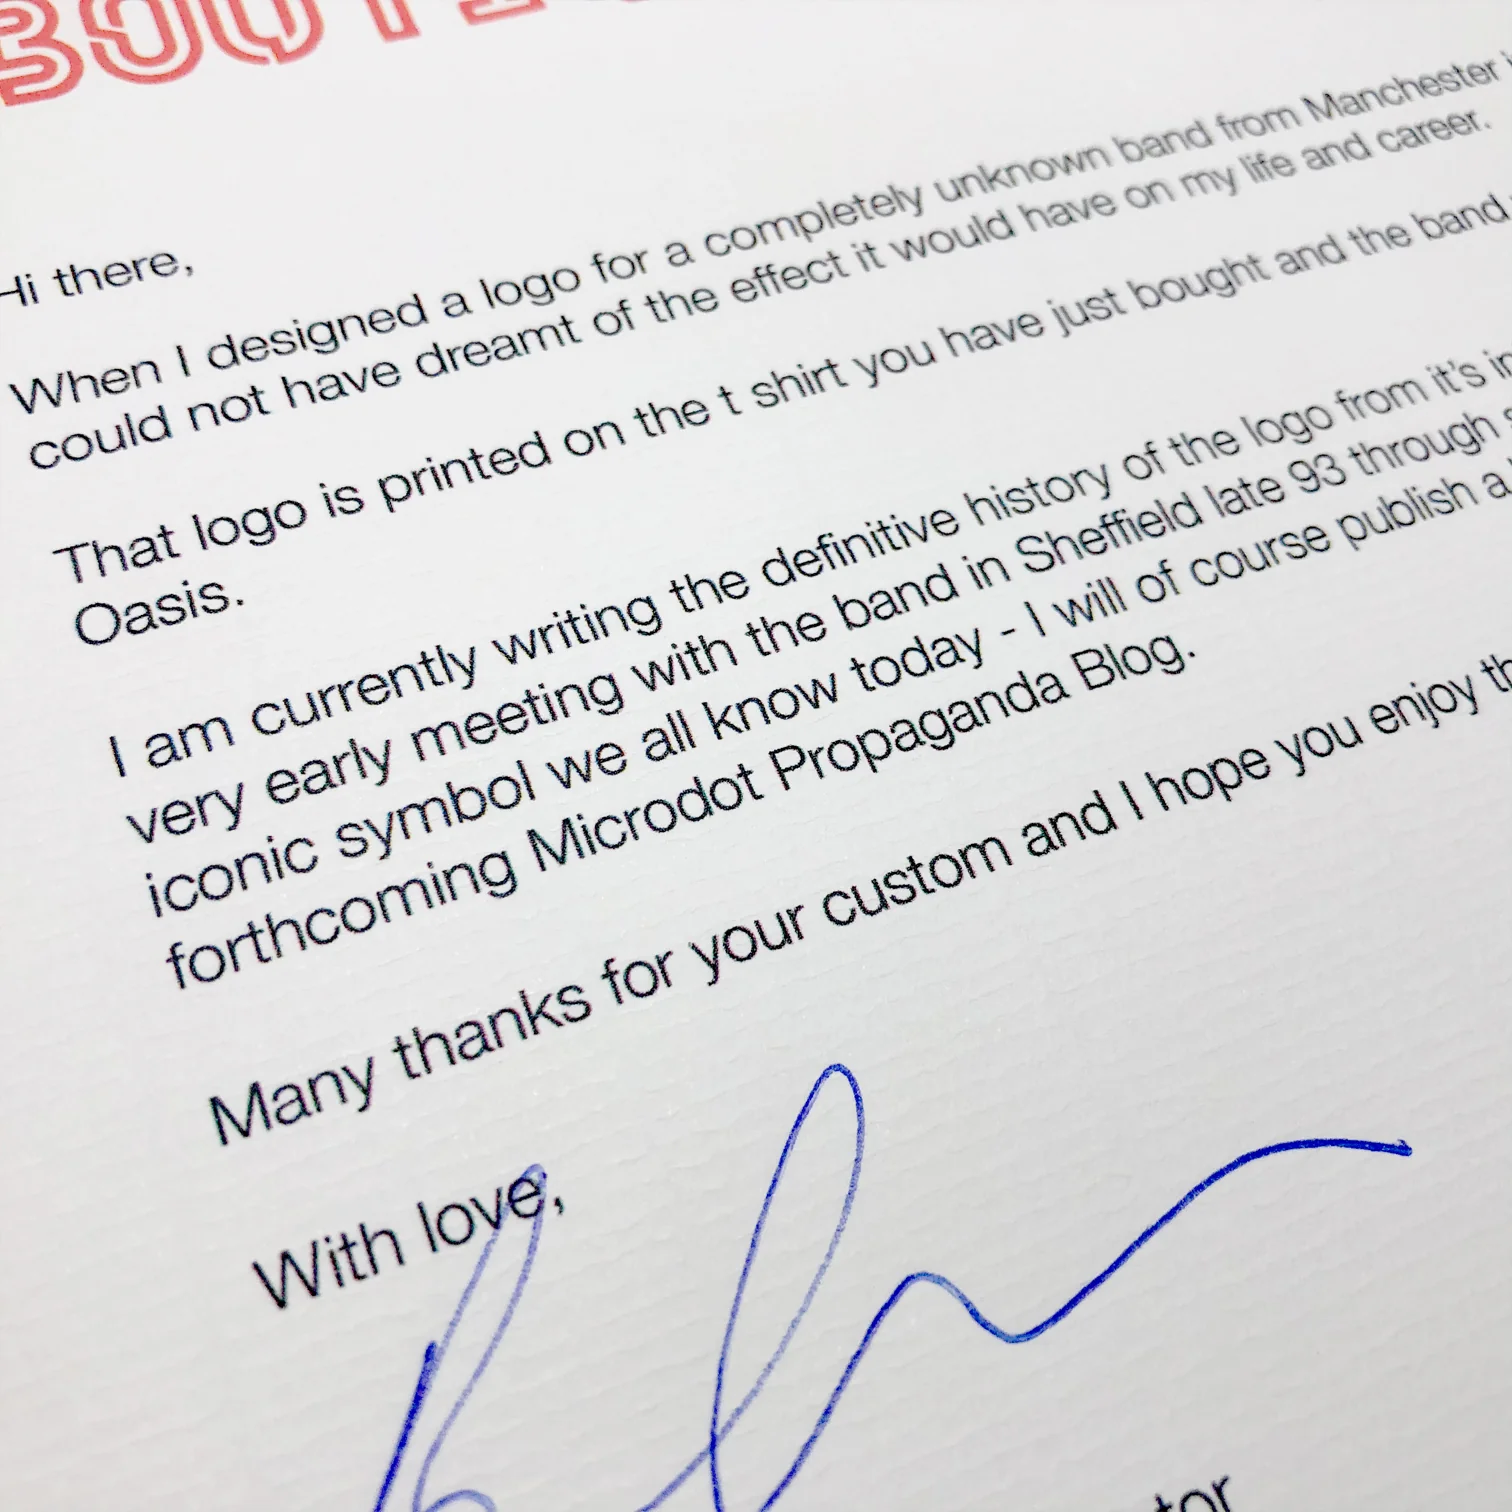 Hi there,
When I designed a logo for a completely unknown band from Manchester
could not have dreamt of the effect it would have on my life and career.
That logo is printed on the t shirt you have just bought and the band
Oasis.
I am currently writing the definitive history of the logo from it's
very early meeting with the band in Sheffield late 93 through
iconic symbol we all know today - I will of course publish a
forthcoming Microdot Propaganda Blog.
Many thanks for your custom and I hope you enjoy
With love,